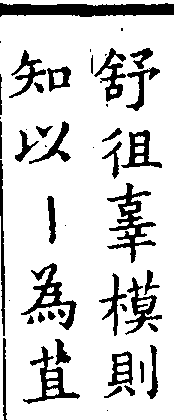 舒徂辜模則
知以丨為苴